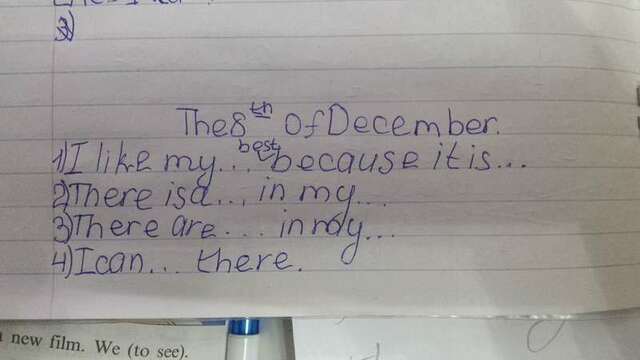 new film. We (to see).
3)
The 8th of December.
1) I like my... best because it is...
2) There is a... in my...
3) There are... in my...
4) I can... there.